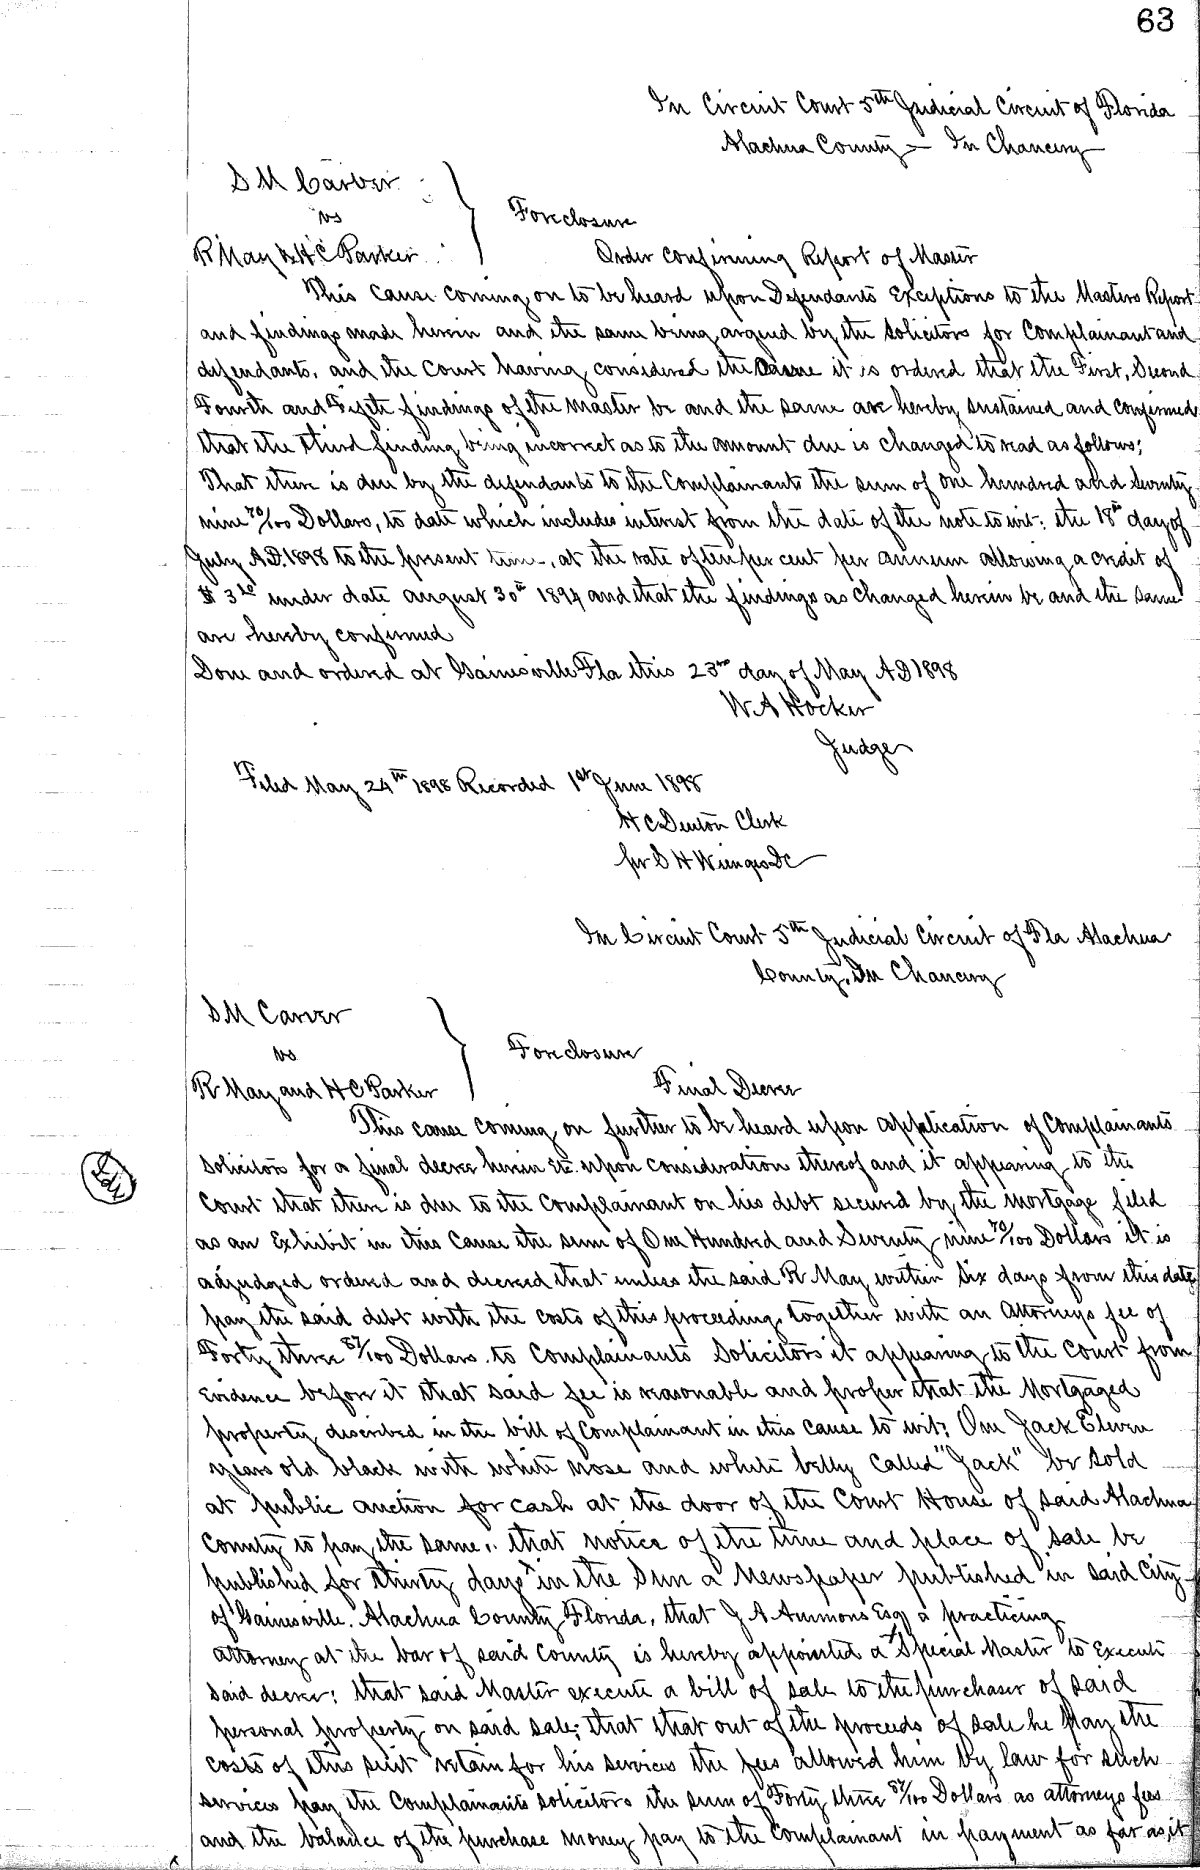 63
In Circuit Court 5th Judicial Circuit of Florida
Alachua County – In Chancery
S M Carver
vs
R May & H C Parker
Foreclosure
Order confirming Report of Master
This cause coming on to be heard upon Defendants Exceptions to the Masters Report
and findings made herein and the same being argued by the solicitors for Complainant and
defendants, and the Court having considered the same it is ordered that the First, Second
Fourth and Fifth findings of the Master be and the same are hereby sustained and confirmed
that the third finding being incorrect as to the amount due is changed to read as follows;
That there is due by the defendants to the Complainants the sum of One hundred and Seventy
nine 70/100 Dollars, to date which includes interest from the date of the note to wit: the 18th day of
July A.D. 1898 to the present time, at the rate of ten per cent per annum allowing a credit of
$ 3 under date August 30th 1894 and that the findings as changed herein be and the same
are hereby confirmed
Done and ordered at Gainesville Fla this 23rd day of May A D 1898
W A Hocker
Judge
Filed May 24th 1898 Recorded 1st June 1898
H C Denton Clerk
per S H Wienges DC
In Circuit Court 5th Judicial Circuit of Fla Alachua
County, In Chancery
S M Carver
vs
R May and H C Parker
Foreclosure
Final Decree
This cause coming on further to be heard upon application of Complainants
Solicitors for a final decree herein &c. upon consideration thereof and it appearing to the
Court that there is due to the Complainant on his debt secured by the mortgage filed
as an Exhibit in this Cause the sum of One Hundred and Seventy nine 70/100 Dollars it is
adjudged ordered and decreed that unless the said R May, within Six days from this date
pay the said debt with the costs of this proceeding, together with an Attorneys fee of
Forty three 87/100 Dollars to Complainants Solicitors it appearing to the Court from
evidence before it that said fee is reasonable and proper that the Mortgaged
property described in the bill of Complainant in this cause to wit; One Jack Eleven
years old black with white nose and white belly called "Jack" be sold
at public auction for cash at the door of the Court House of said Alachua
County to pay the same, that notice of the time and place of sale be
published for thirty days in the Sun a Newspaper published in said City
of Gainesville, Alachua County Florida, that J A Ammons Esq a practicing
attorney at the bar of said County is hereby appointed a Special Master to Execute
said decree; that said Master execute a bill of sale to the purchaser of said
personal property on said sale; that that out of the proceeds of sale he pay the
costs of this suit retain for his services the fees allowed him by law for such
services pay the Complainants solicitors the sum of Forty three 87/100 Dollars as attorneys fees
and the balance of the purchase money pay to the Complainant in payment as far as it